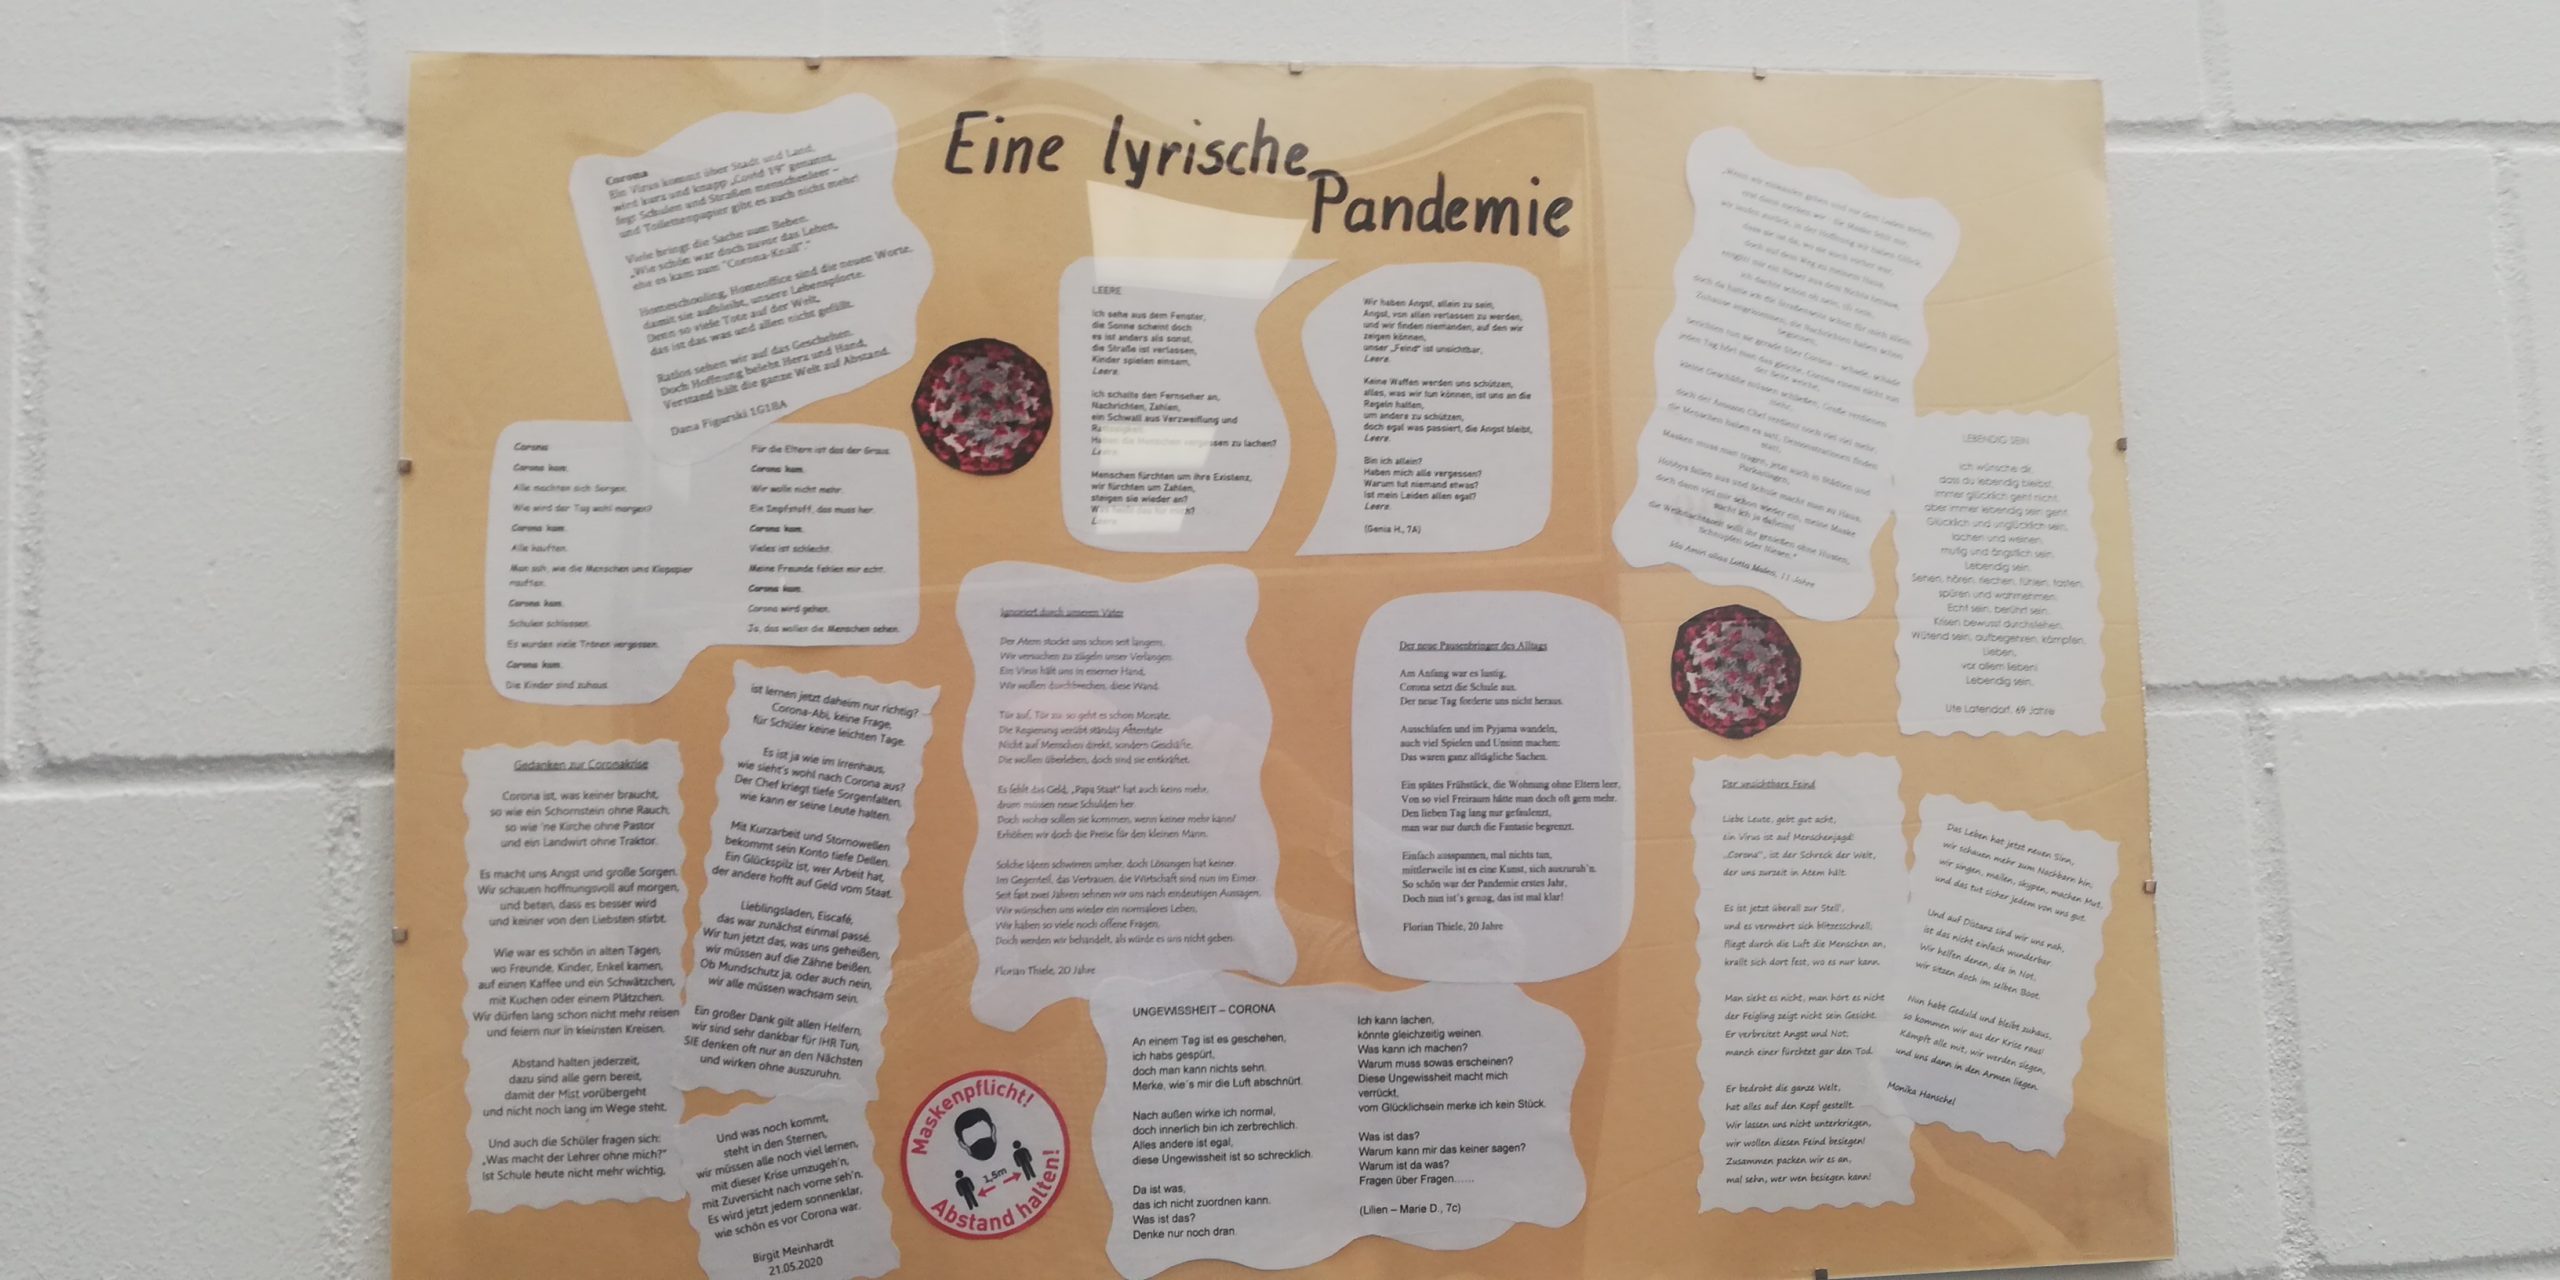 Eine lyrische
Pandemie
Corona
Ein Virus kommt über Stadt und Land,
wird kurz und knapp „Covid 19" genannt,
fegt Schulen und Straßen menschenleer –
und Toilettenpapier gibt es auch nicht mehr!
Viele bringt die Sache zum Beben.
„Wie schön war doch zuvor das Leben,
ehe es kam zum "Corona-Knall"."
Homeschooling, Homeoffice sind die neuen Worte,
damit sie aufbleibt, unsere Lebenspforte.
Denn so viele Tote auf der Welt,
das ist das was und allen nicht gefällt.
Ratlos sehen wir auf das Geschehen.
Doch Hoffnung belebt Herz und Hand,
Verstand hält die ganze Welt auf Abstand.
Dana Figurski 1G18A
Corona
Corona kam.
Alle machten sich Sorgen.
Wie wird der Tag wohl morgen?
Corona kam.
Alle kauften.
Man sah, wie die Menschen ums Klopapier
rauften.
Corona kam.
Schulen schlossen.
Es wurden viele Tränen vergossen.
Corona kam.
Die Kinder sind zuhaus.
Für die Eltern ist das der Graus.
Corona kam.
Wir wolln nicht mehr.
Ein Impfstoff, das muss her.
Corona kam.
Vieles ist schlecht.
Meine Freunde fehlen mir echt.
Corona kam.
Corona wird gehen.
Ja, das wollen die Menschen sehen.
Gedanken zur Coronakrise
Corona ist, was keiner braucht,
so wie ein Schornstein ohne Rauch,
so wie 'ne Kirche ohne Pastor
und ein Landwirt ohne Traktor.
Es macht uns Angst und große Sorgen.
Wir schauen hoffnungsvoll auf morgen,
und beten, dass es besser wird
und keiner von den Liebsten stirbt.
Wie war es schön in alten Tagen,
wo Freunde, Kinder, Enkel kamen,
auf einen Kaffee und ein Schwätzchen,
mit Kuchen oder einem Plätzchen.
Wir dürfen lang schon nicht mehr reisen
und feiern nur in kleinsten Kreisen.
Abstand halten jederzeit,
dazu sind alle gern bereit,
damit der Mist vorübergeht
und nicht noch lang im Wege steht.
Und auch die Schüler fragen sich:
„Was macht der Lehrer ohne mich?"
Ist Schule heute nicht mehr wichtig,
ist lernen jetzt daheim nur richtig?
Corona-Abi, keine Frage,
für Schüler keine leichten Tage.
Es ist ja wie im Irrenhaus,
wie sieht's wohl nach Corona aus?
Der Chef kriegt tiefe Sorgenfalten,
wie kann er seine Leute halten.
Mit Kurzarbeit und Stornowellen
bekommt sein Konto tiefe Dellen.
Ein Glückspilz ist, wer Arbeit hat,
der andere hofft auf Geld vom Staat.
Lieblingsladen, Eiscafé,
das war zunächst einmal passé.
Wir tun jetzt das, was uns geheißen,
wir müssen auf die Zähne beißen.
Ob Mundschutz ja, oder auch nein,
wir alle müssen wachsam sein.
Ein großer Dank gilt allen Helfern,
wir sind sehr dankbar für IHR Tun,
SIE denken oft nur an den Nächsten
und wirken ohne auszuruhn.
Und was noch kommt,
steht in den Sternen,
wir müssen alle noch viel lernen,
mit dieser Krise umzugeh'n,
mit Zuversicht nach vorne seh'n.
Es wird jetzt jedem sonnenklar,
wie schön es vor Corona war.
Birgit Meinhardt
21.05.2020
LEERE
Ich sehe aus dem Fenster,
die Sonne scheint doch
es ist anders als sonst,
die Straße ist verlassen,
Kinder spielen einsam,
Leere.
Ich schalte den Fernseher an,
Nachrichten, Zahlen,
ein Schwall aus Verzweiflung und
Ratlosigkeit.
Haben die Menschen vergessen zu lachen?
Leere.
Menschen fürchten um ihre Existenz,
wir fürchten um Zahlen,
steigen sie wieder an?
Was heißt das für mich?
Leere.
Wir haben Angst, allein zu sein,
Angst, von allen verlassen zu werden,
und wir finden niemanden, auf den wir
zeigen können,
unser „Feind" ist unsichtbar,
Leere.
Keine Waffen werden uns schützen,
alles, was wir tun können, ist uns an die
Regeln halten,
um andere zu schützen,
doch egal was passiert, die Angst bleibt,
Leere.
Bin ich allein?
Haben mich alle vergessen?
Warum tut niemand etwas?
Ist mein Leiden allen egal?
Leere.
(Genia H., 7A)
Ignoriert durch unseren Vater
Der Atem stockt uns schon seit langem,
Wir versuchen zu zügeln unser Verlangen.
Ein Virus hält uns in eiserner Hand,
Wir wollen durchbrechen, diese Wand.
Tür auf, Tür zu so geht es schon Monate.
Die Regierung verübt ständig Attentate
Nicht auf Menschen direkt, sondern Geschäfte,
Die wollen überleben, doch sind sie entkräftet.
Es fehlt das Geld, „Papa Staat" hat auch keins mehr,
drum müssen neue Schulden her.
Doch woher sollen sie kommen, wenn keiner mehr kann?
Erhöhen wir doch die Preise für den kleinen Mann.
Solche Ideen schwirren umher, doch Lösungen hat keiner.
Im Gegenteil, das Vertrauen, die Wirtschaft sind nun im Eimer.
Seit fast zwei Jahren sehnen wir uns nach eindeutigen Aussagen,
Wir wünschen uns wieder ein normaleres Leben,
Wir haben so viele noch offene Fragen,
Doch werden wir behandelt, als würde es uns nicht geben.
Florian Thiele, 20 Jahre
Der neue Pausenbringer des Alltags
Am Anfang war es lustig,
Corona setzt die Schule aus.
Der neue Tag forderte uns nicht heraus.
Ausschlafen und im Pyjama wandeln,
auch viel Spielen und Unsinn machen:
Das waren ganz alltägliche Sachen.
Ein spätes Frühstück, die Wohnung ohne Eltern leer,
Von so viel Freiraum hätte man doch oft gern mehr.
Den lieben Tag lang nur gefaulenzt,
man war nur durch die Fantasie begrenzt.
Einfach ausspannen, mal nichts tun,
mittlerweile ist es eine Kunst, sich auszuruh'n.
So schön war der Pandemie erstes Jahr,
Doch nun ist's genug, das ist mal klar!
Florian Thiele, 20 Jahre
Maskenpflicht!
1,5m
Abstand halten!
UNGEWISSHEIT – CORONA
An einem Tag ist es geschehen,
ich habs gespürt,
doch man kann nichts sehn.
Merke, wie's mir die Luft abschnürt.
Nach außen wirke ich normal,
doch innerlich bin ich zerbrechlich.
Alles andere ist egal,
diese Ungewissheit ist so schrecklich.
Da ist was,
das ich nicht zuordnen kann.
Was ist das?
Denke nur noch dran.
Ich kann lachen,
könnte gleichzeitig weinen.
Was kann ich machen?
Warum muss sowas erscheinen?
Diese Ungewissheit macht mich
verrückt,
vom Glücklichsein merke ich kein Stück.
Was ist das?
Warum kann mir das keiner sagen?
Warum ist da was?
Fragen über Fragen......
(Lilien – Marie D., 7c)
berichten tun sie gerade über Corona – schade, schade
jeden Tag hört man das gleiche, Corona einem nicht von
der Seite weiche,
kleine Geschäfte müssen schließen, Große verdienen
mehr,
doch der Amazon Chef verdient noch viel viel mehr,
die Menschen haben es satt, Demonstrationen finden
statt,
Masken muss man tragen, jetzt auch in Städten und
Parkanlagen,
Hobbys fallen aus und Schule macht man zu Haus,
doch dann viel mir schon wieder ein, meine Maske
sucht ich ja daheim!
die Weihnachtszeit sollt ihr genießen ohne Husten,
Schnupfen oder Niesen."
alias Lotta Malen, 11 Jahre
LEBENDIG SEIN
Ich wünsche dir,
dass du lebendig bleibst.
Immer glücklich geht nicht,
aber immer lebendig sein geht.
Glücklich und unglücklich sein,
lachen und weinen,
mutig und ängstlich sein.
Lebendig sein.
Sehen, hören, riechen, fühlen, tasten,
spüren und wahrnehmen.
Echt sein, berührt sein.
Krisen bewusst durchstehen.
Wütend sein, aufbegehren, kämpfen.
Lieben,
vor allem lieben!
Lebendig sein.
Ute Latendorf, 69 Jahre
Der unsichtbare Feind
Liebe Leute, gebt gut acht,
ein Virus ist auf Menschenjagd!
„Corona", ist der Schreck der Welt,
der uns zurzeit in Atem hält.
Es ist jetzt überall zur Stell',
und es vermehrt sich blitzesschnell;
fliegt durch die Luft die Menschen an,
krallt sich dort fest, wo es nur kann.
Man sieht es nicht, man hört es nicht
der Feigling zeigt nicht sein Gesicht.
Er verbreitet Angst und Not;
manch einer fürchtet gar den Tod.
Er bedroht die ganze Welt,
hat alles auf den Kopf gestellt.
Wir lassen uns nicht unterkriegen,
wir wollen diesen Feind besiegen!
Zusammen packen wir es an,
mal sehn, wer wen besiegen kann!
Das Leben hat jetzt neuen Sinn,
wir schauen mehr zum Nachbarn hin,
wir singen, mailen, skypen, machen Mut,
und das tut sicher jedem von uns gut.
Und auf Distanz sind wir uns nah,
ist das nicht einfach wunderbar.
Wir helfen denen, die in Not,
wir sitzen doch im selben Boot.
Nun habt Geduld und bleibt zuhaus,
so kommen wir aus der Krise raus!
Kämpft alle mit, wir werden siegen,
und uns dann in den Armen liegen.
Monika Hanschel